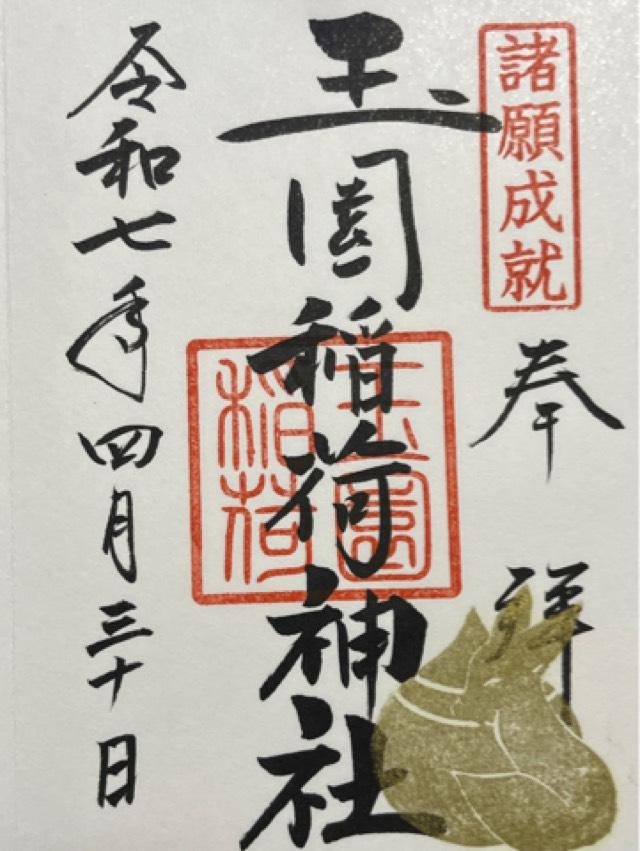 諸願成就
奉拝
玉圀稲荷神社
玉圀稲荷
令和七年四月三十日